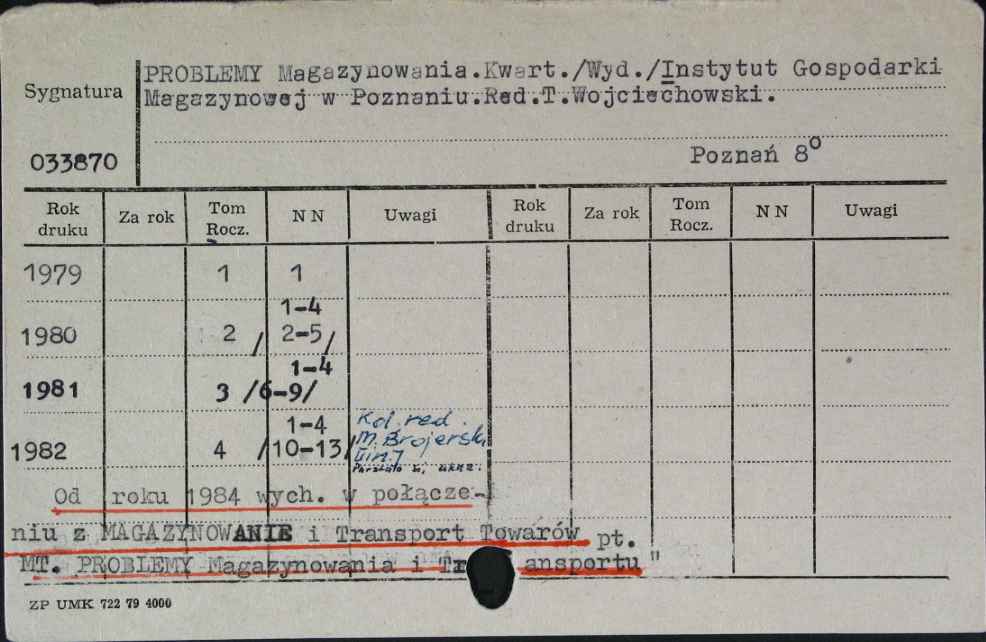 PROBLEMY Magazynowania.Kwart./Wyd./Instytut Gospodarki
Sygnatura
Magazynowej w Poznaniu.Red.T.Wojciechowski.
033870
Poznań 8°
Rok druku Za rok Tom Rocz. NN Uwagi Rok druku Za rok Tom Rocz. NN Uwagi
1979 1 1
1-4
1980 2 /2-5/
1-4
1981 3 /6-9/
1-4
1982 4 /10-13/
Kol. red.
M. Brojerski
Od roku 1984 wych. w połącze-
niu z MAGAZYNOWANIE i Transport Towarów pt.
MT. PROBLEMY Magazynowania i Transportu"
ZP UMK 722 79 4000